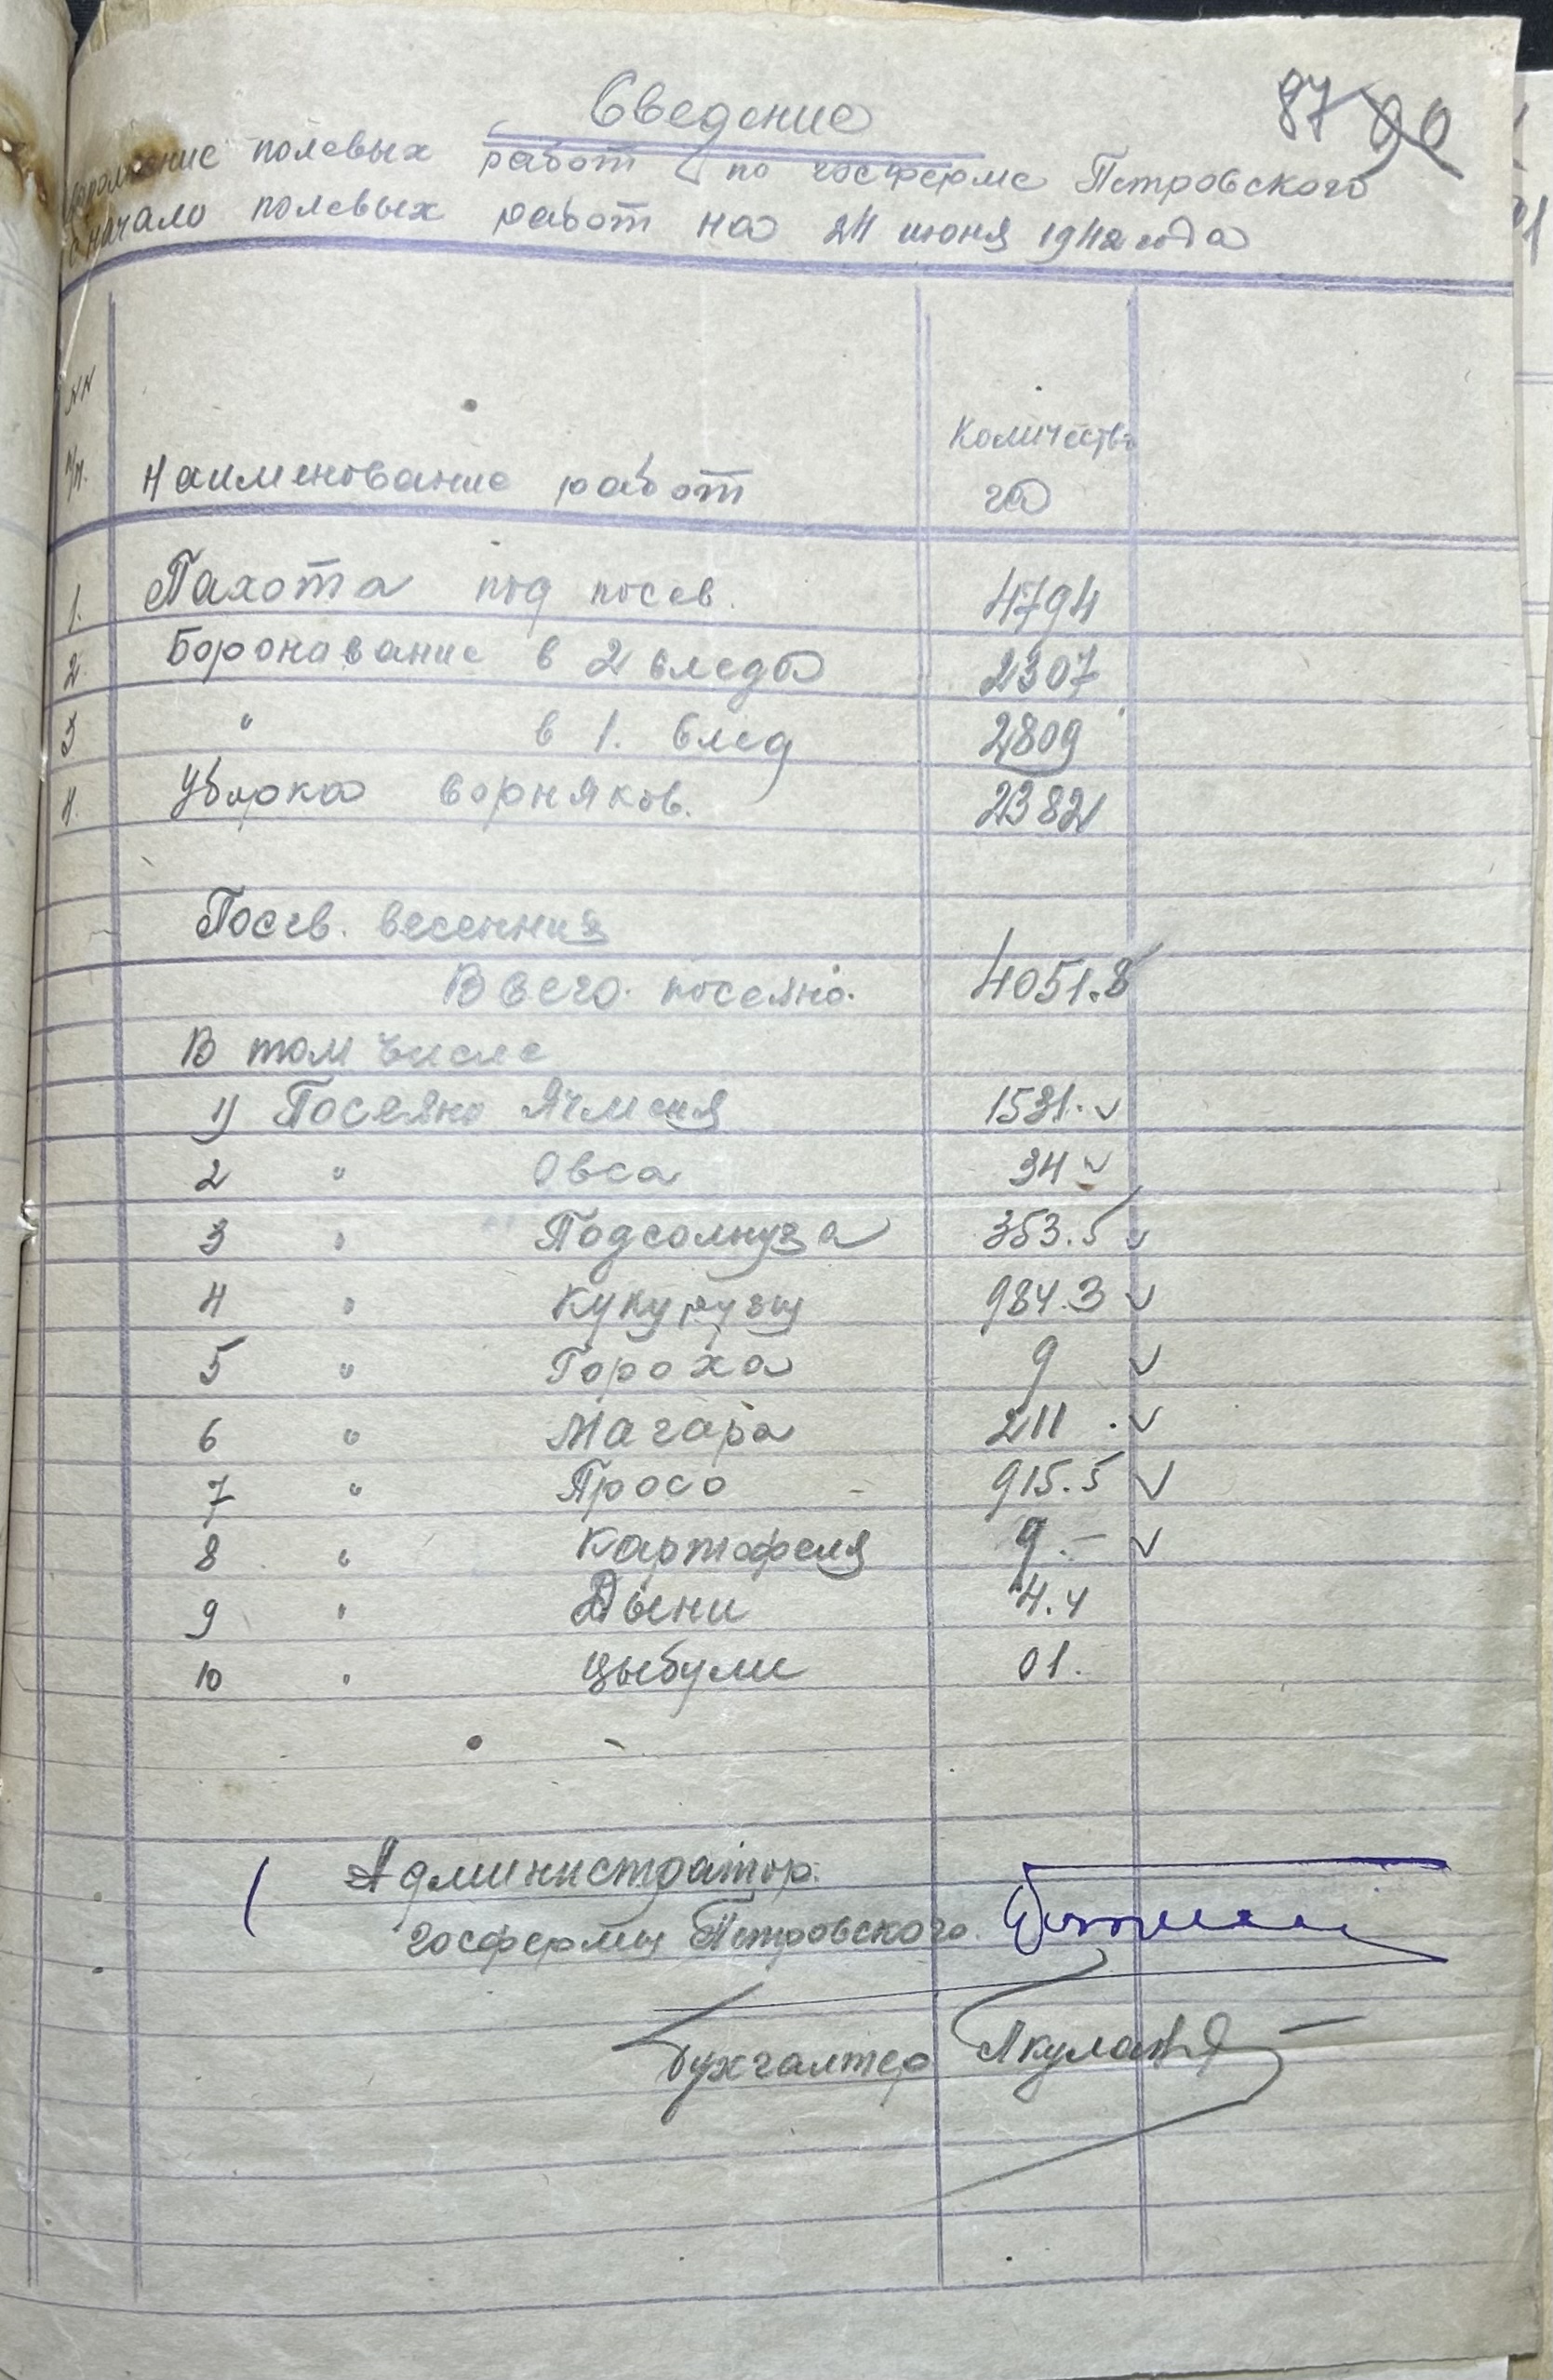 Сведение
87 90
выполнение полевых работ по госферме Петровского
с начало полевых работ на 24 июня 1942 года
NN
п/п.
Наименование работ
Количество
га
1. Пахота под посев. 4794
2. Боронавание в 2 следа 2307
3 " в 1. след 2809
4. Уборка сорняков. 2382
Посев. весенний
Всего. посеяно. 4051.8
В том числе
1) Посеяно Ячменя 1531. v
2 " Овса 34 v
3 " Подсолнуха 353.5 v
4 " Кукурузы 984.3 v
5 " Гороха 9 v
6 " Магара 211 . v
7 " Просо 915.5 v
8 " Картофеля 9.— v
9 " Дыни 4.4
10 " Цыбули 01.
Администратор.
госфермы Петровского.
Бухгалтер